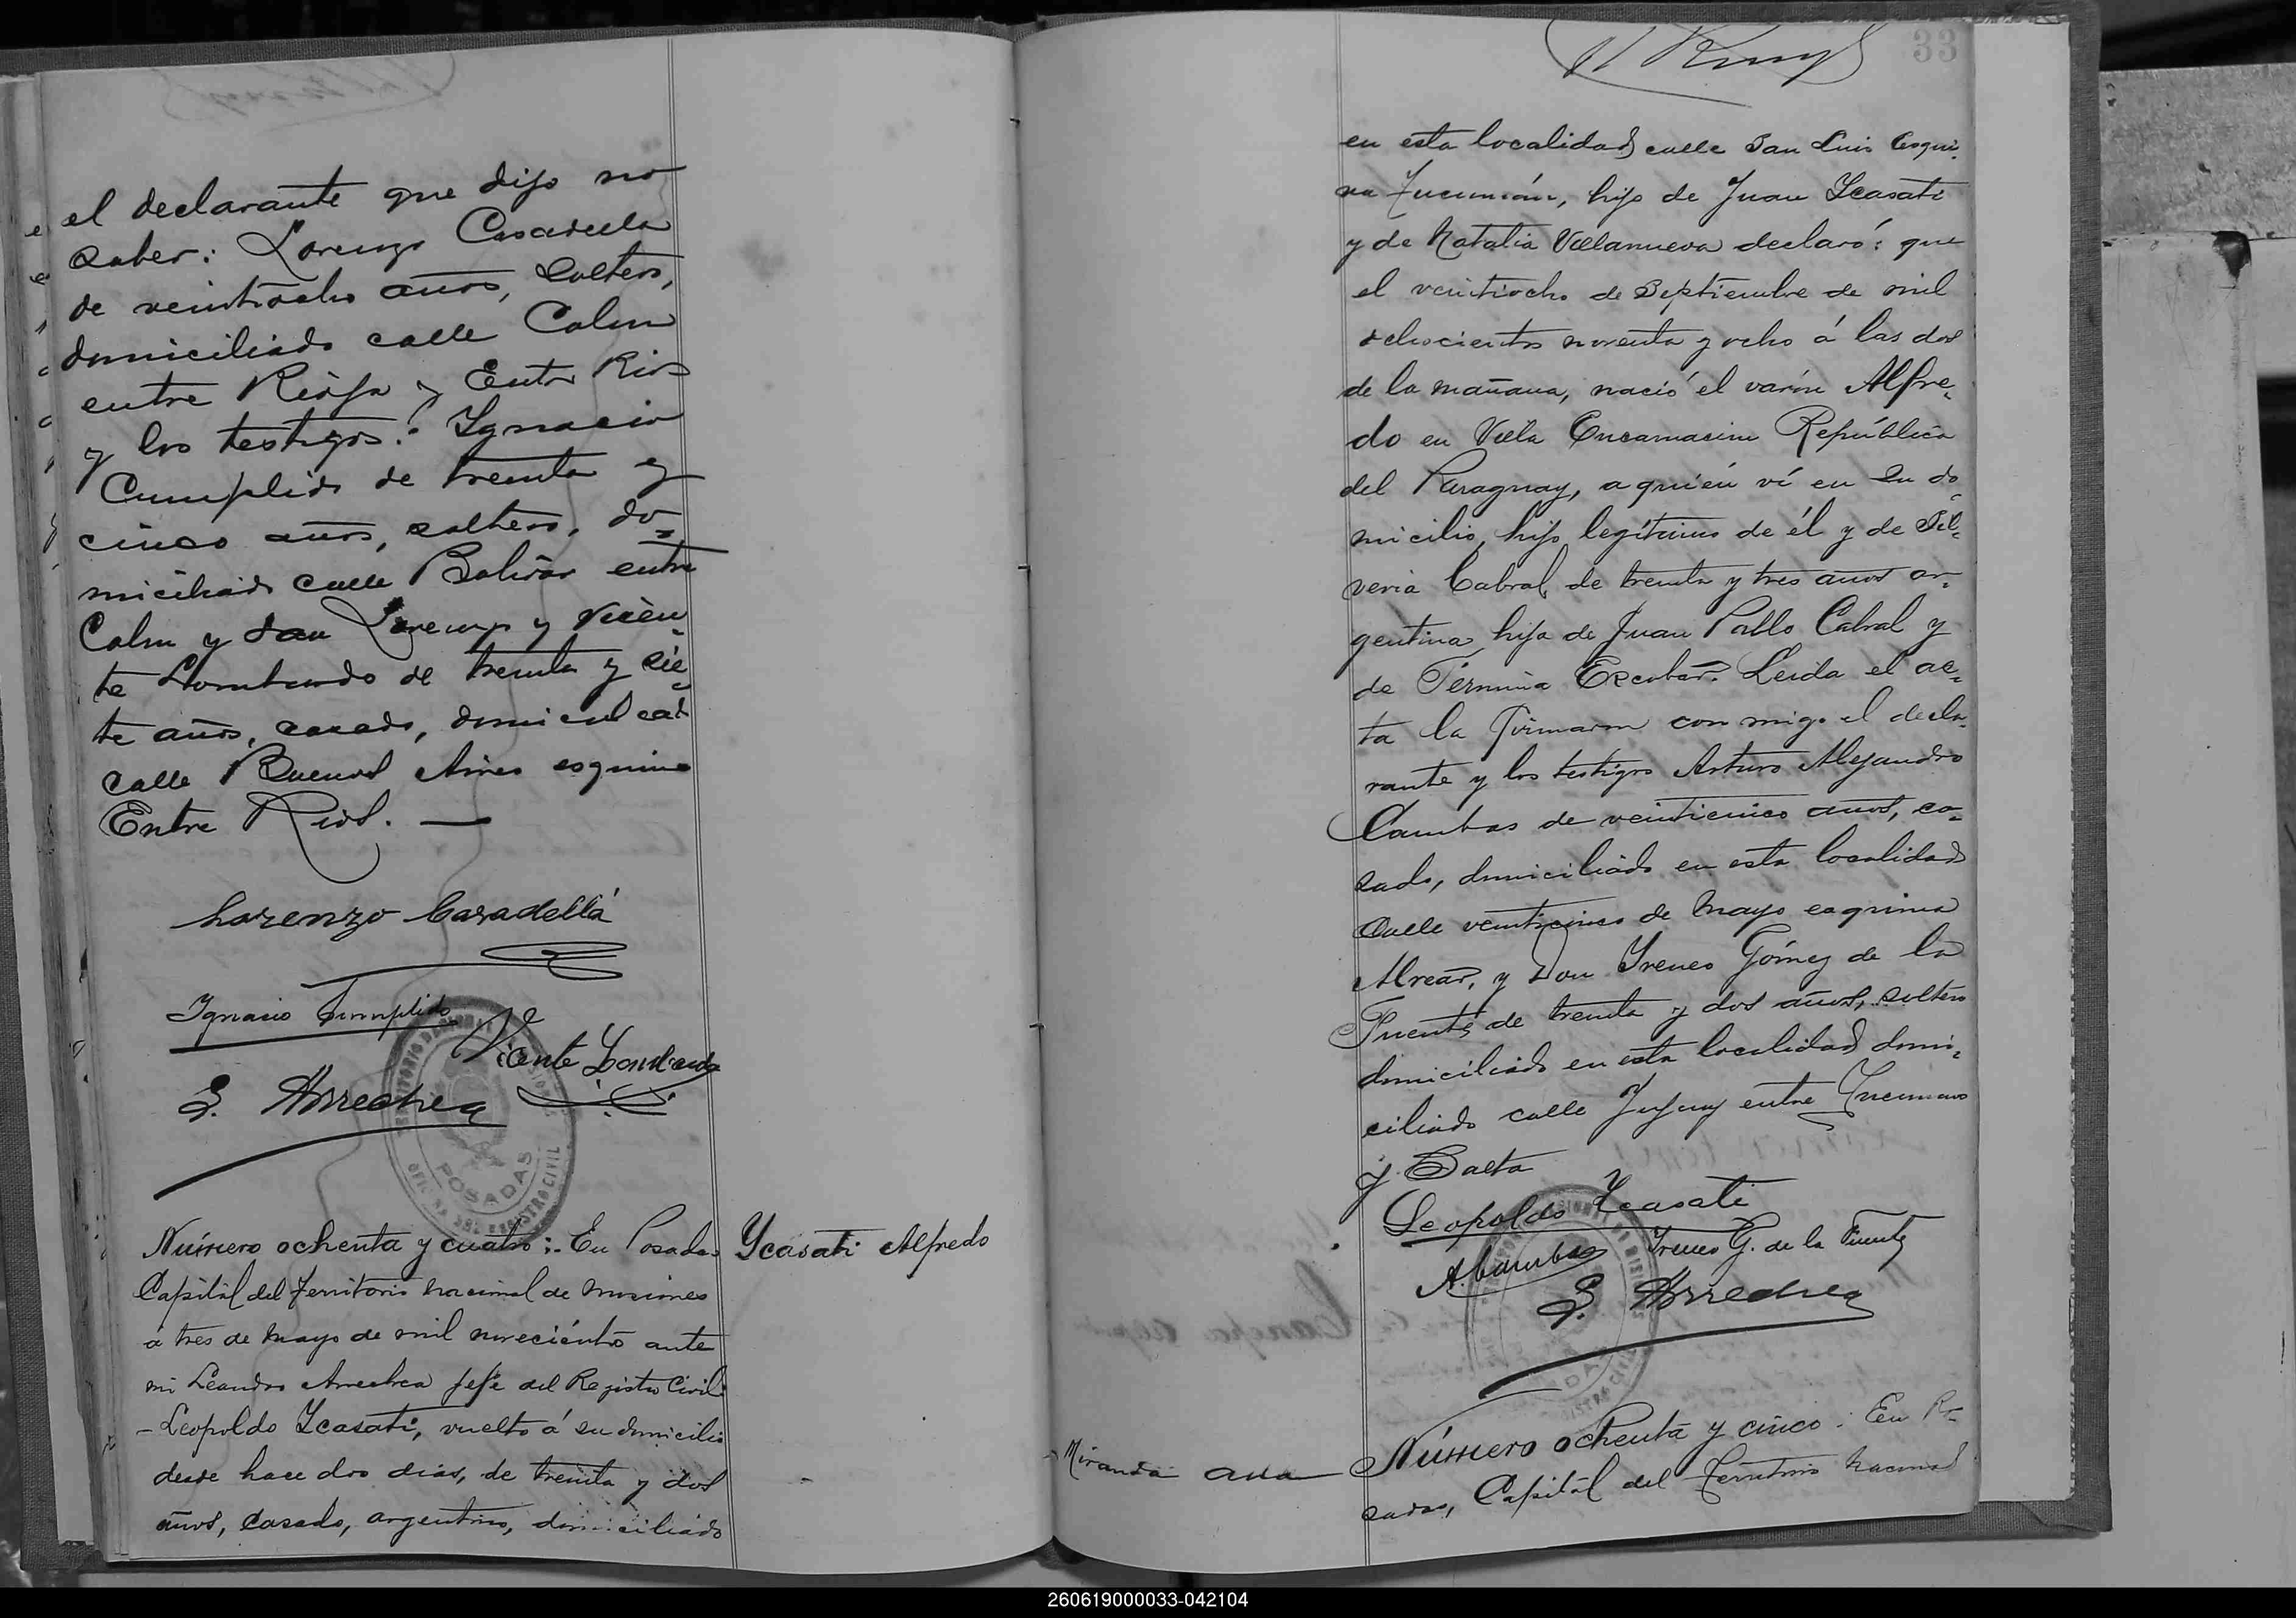 el declarante que dijo no
saber: Lorenzo Casadella
de veintiocho años, soltero,
domiciliado calle Colon
entre Rioja y Entre Rios
y los testigos: Ignacio
Cumplido de treinta y
cinco años, soltero, do-
miciliado calle Bolivar entre
Colon y San Lorenzo y Vicen-
te Lombardo de treinta y sie-
te años, casado, domiciliad
calle Buenos Aires esquina
Entre Rios.
Lorenzo Casadellá
Ignacio Cumplido
Vicente Lombardo
L. Arrechea
POSADAS
REGISTRO CIVIL
Número ochenta y cuatro: En Posadas
Ycasati Alfredo
Capital del Territorio Nacional de Misiones
á tres de Mayo de mil novecientos ante
mi Leandro Arrechea Jefe del Registro Civil
- Leopoldo Ycasati, vuelto á su domicilio
desde hace dos dias, de treinta y dos
años, casado, argentino, domiciliado
33
en esta localidad calle San Luis esqui-
na Tucumán, hijo de Juan Ycasati
y de Natalia Villanueva declaró: que
el veintiocho de Septiembre de mil
ochocientos noventa y ocho á las dos
de la mañana, nació el varón Alfre-
do en Villa Encarnacion República
del Paraguay, a quién ví en su do-
micilio, hijo legítimo de él y de Sil-
veria Cabral, de treinta y tres años ar-
gentina hija de Juan Pablo Cabral y
de Fermina Escobar. Leida el ac-
ta la firmaron con migo el decla-
rante y los testigos Arturo Alejandro
Cambas de veinticinco años, ca-
sado, domiciliado en esta localidad
calle veinticinco de Mayo esquina
Alvear, y Don Ireneo Gómez de la
Fuente de treinta y dos años, soltero
domiciliado en esta localidad domi-
ciliado calle Jujuy entre Tucuman
y Salta
Leopoldo Ycasati
A. Cambas
Ireneo G. de la Fuente
L. Arrechea
Miranda Ana
Número ochenta y cinco: En Po-
sadas, Capital del Territorio Nacional
260619000033-042104